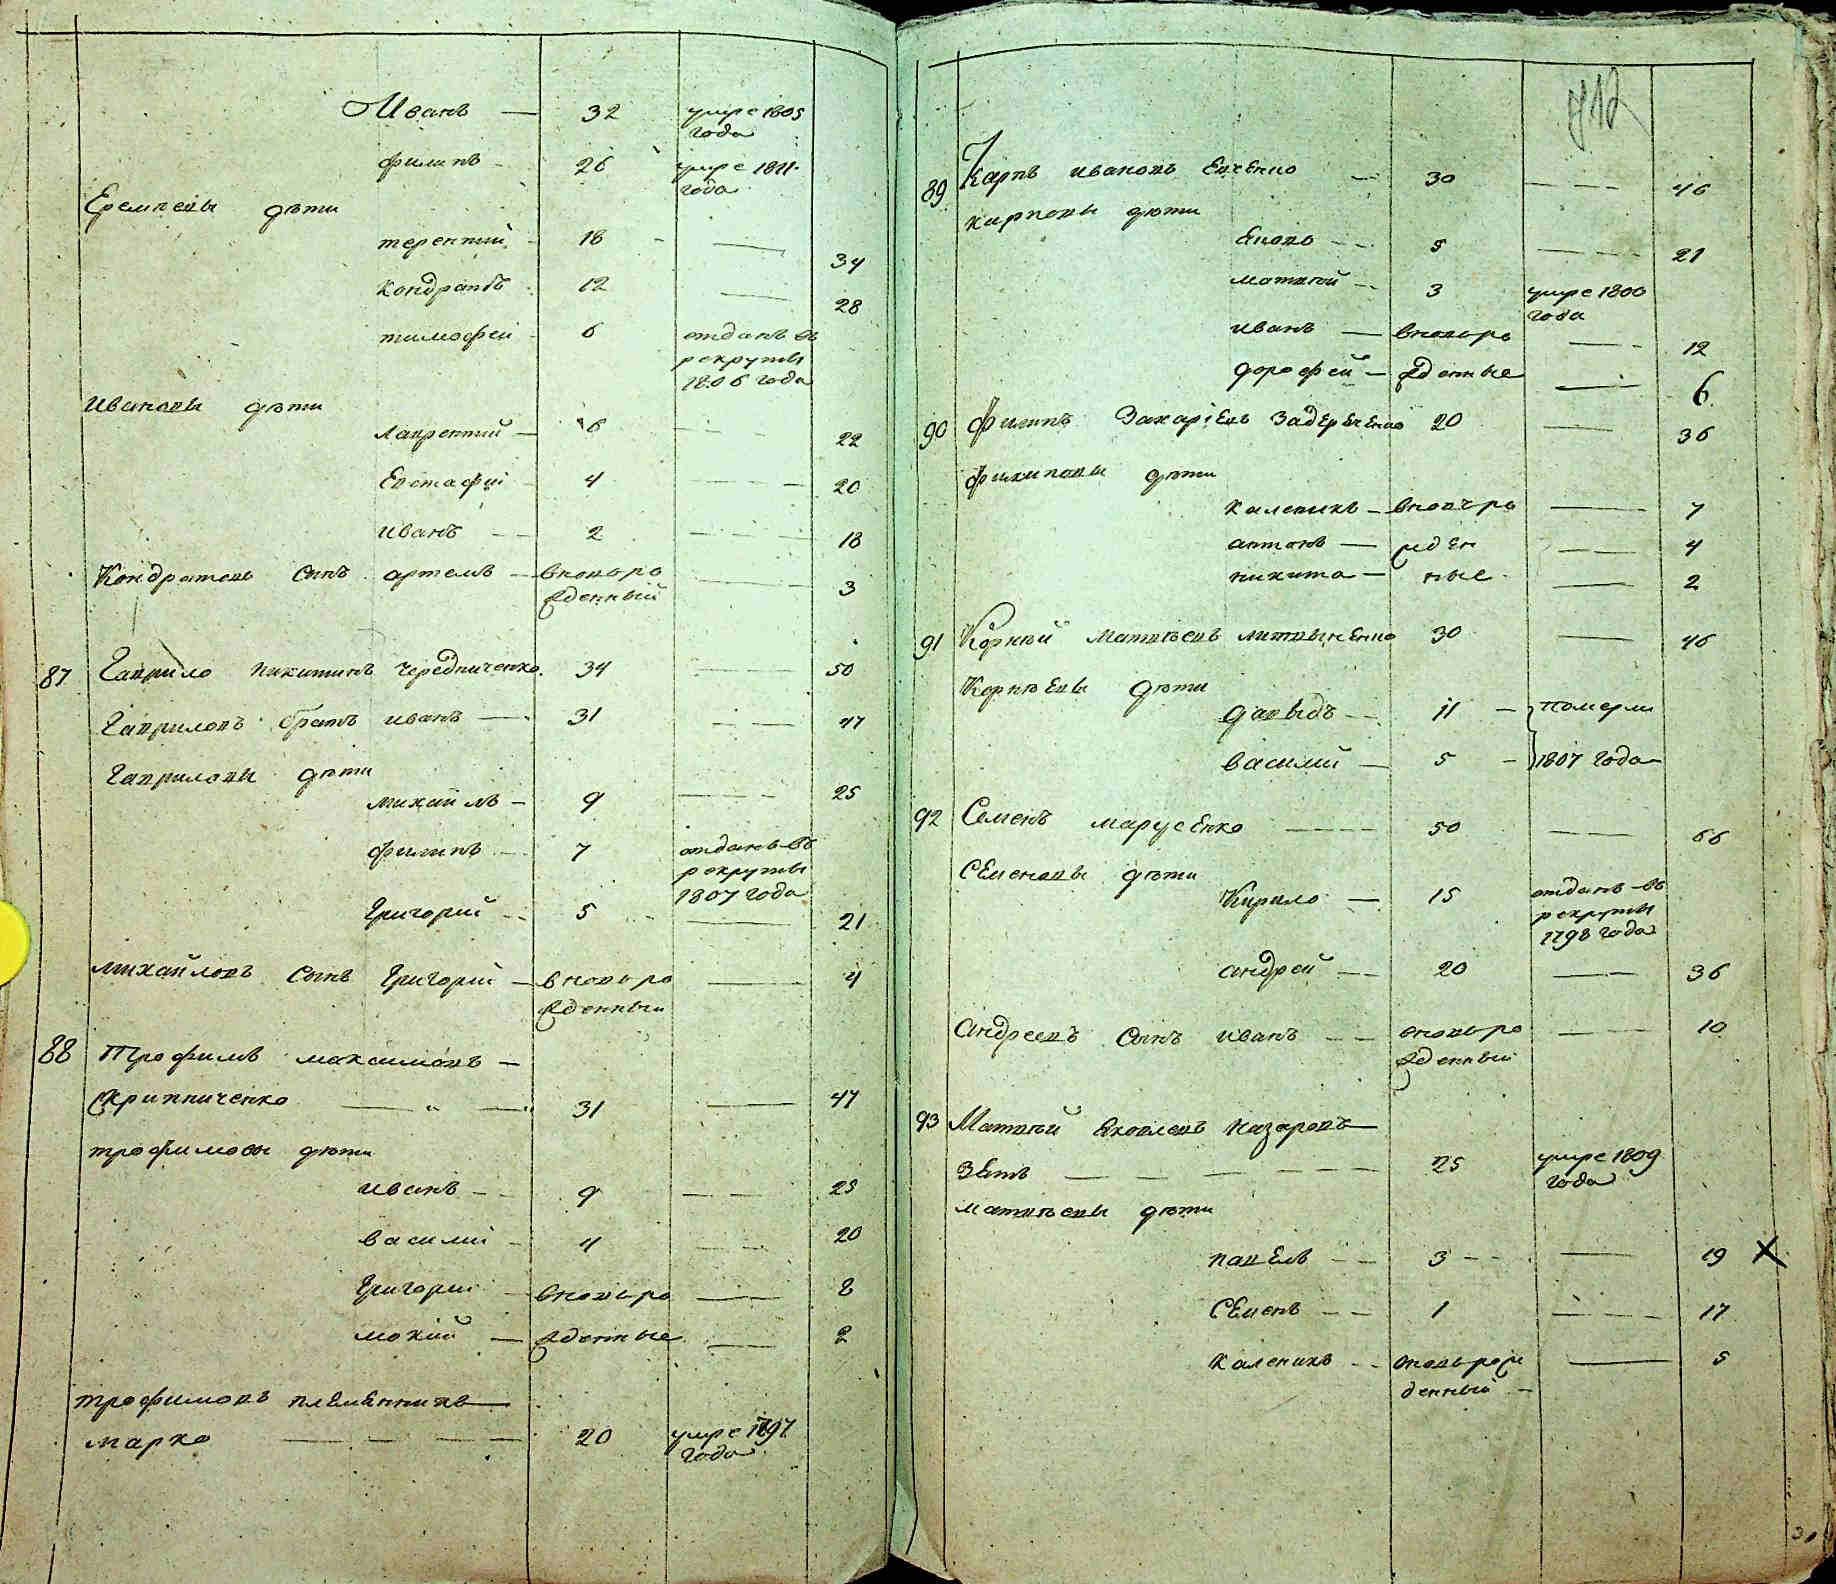 Иванъ — 32 умре 1805
года
филипъ 26 умре 1811
года
Еремпевы дѣти
терентий 18 — 34
кондратъ 12 — 28
тимофей 6 отданъ въ
рекруты
1806 года
Ивановы дѣти
Лаврентий — 6 — 22
Евстафий 4 — 20
Иванъ — 2 — 18
Кондратовъ сынъ артемъ — вновьро — 3
жденный
87 Гаврило Никитинъ Чередниченко 34 — 50
Гавриловъ братъ иванъ — 31 — 47
Гавриловы дѣти
михайлъ — 9 — 25
филипъ — 7 отданъ въ
рекруты
1807 года
Григорий — 5 — 21
михайловъ сынъ Григорий — вновьро — 4
жденный
88 Трофимъ максимовъ —
Скрипниченко — 31 — 47
трофимовы дѣти
иванъ — 9 — 25
василий — 4 — 20
Григорий — вновьро — 8
мокий — жденные — 2
трофимовъ племенникъ —
марко — 20 умре 1797
года
712
89 Карпъ Ивановъ 30 — 46
карповы дѣти
Яковъ — 5 — 21
матвей — 3 умре 1800
года
иванъ — вновьро — 12
дорофей — жденные — 6
90 Филипъ Захариевъ Задереченко 20 — 36
филиповы дѣти
каленикъ — вновьро — 7
антонъ — жден — 4
никита — ные — 2
91 Корний Матвѣевъ литвиненко 30 — 46
Корнѣевы дѣти
давыдъ — 11 — померли
василий — 5 — 1807 года
92 Семенъ марусенко — 50 — 66
Семеновы дѣти
Кирило — 15 отданъ въ
рекруты
1798 года
андрей — 20 — 36
андреевъ сынъ иванъ — вновьро — 10
жденный
93 Матвей Яковлевъ назаровъ —
зять — 25 умре 1809
года
матвѣевы дѣти
павелъ — 3 — 19 X
Семенъ — 1 — 17
каленикъ — вновьрож — 5
денный —